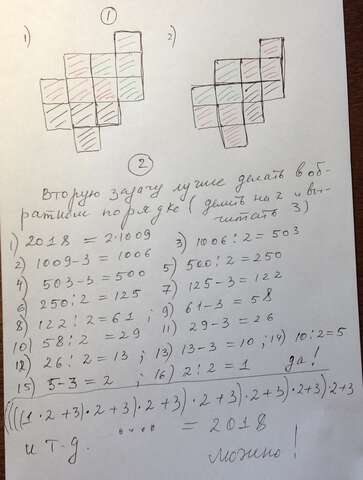 ①
1)
2)
②
Вторую задачу лучше делать в об-
ратном порядке (делить на 2 и вы-
читать 3)
1) 2018 = 2·1009
2) 1009-3 = 1006
3) 1006:2 = 503
4) 503-3 = 500
5) 500:2 = 250
6) 250:2 = 125
7) 125-3 = 122
8) 122:2 = 61; 9) 61-3 = 58
10) 58:2 = 29 11) 29-3 = 26
12) 26:2 = 13; 13) 13-3 = 10; 14) 10:2=5
15) 5-3 = 2; 16) 2:2 = 1 да!
((((1·2+3)·2+3)·2+3)·2+3)·2+3)·2+3)·2+3
и т.д. .... = 2018
можно!